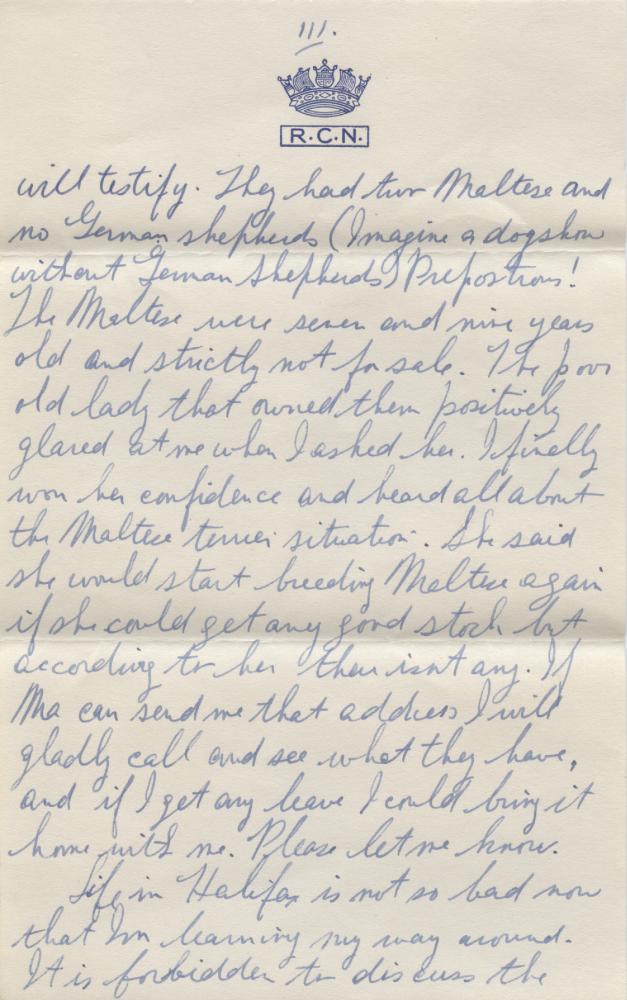 III.
R.C.N.
will testify. They had two Maltese and
no German shepherds (Imagine a dogshow
without German Shepherds) Prepostrous!
The Maltese were seven and nine years
old and strictly not for sale. The poor
old lady that owned them positively
glared at me when I asked her. I finally
won her confidence and heard all about
the Maltese terrier situation. She said
she would start breeding Maltese again
if she could get any good stock but
according to her there isn't any. If
Ma can send me that address I will
gladly call and see what they have,
and if I get any leave I could bring it
home with me. Please let me know.
Life in Halifax is not so bad now
that I'm learning my way around.
It is forbidden to discuss the